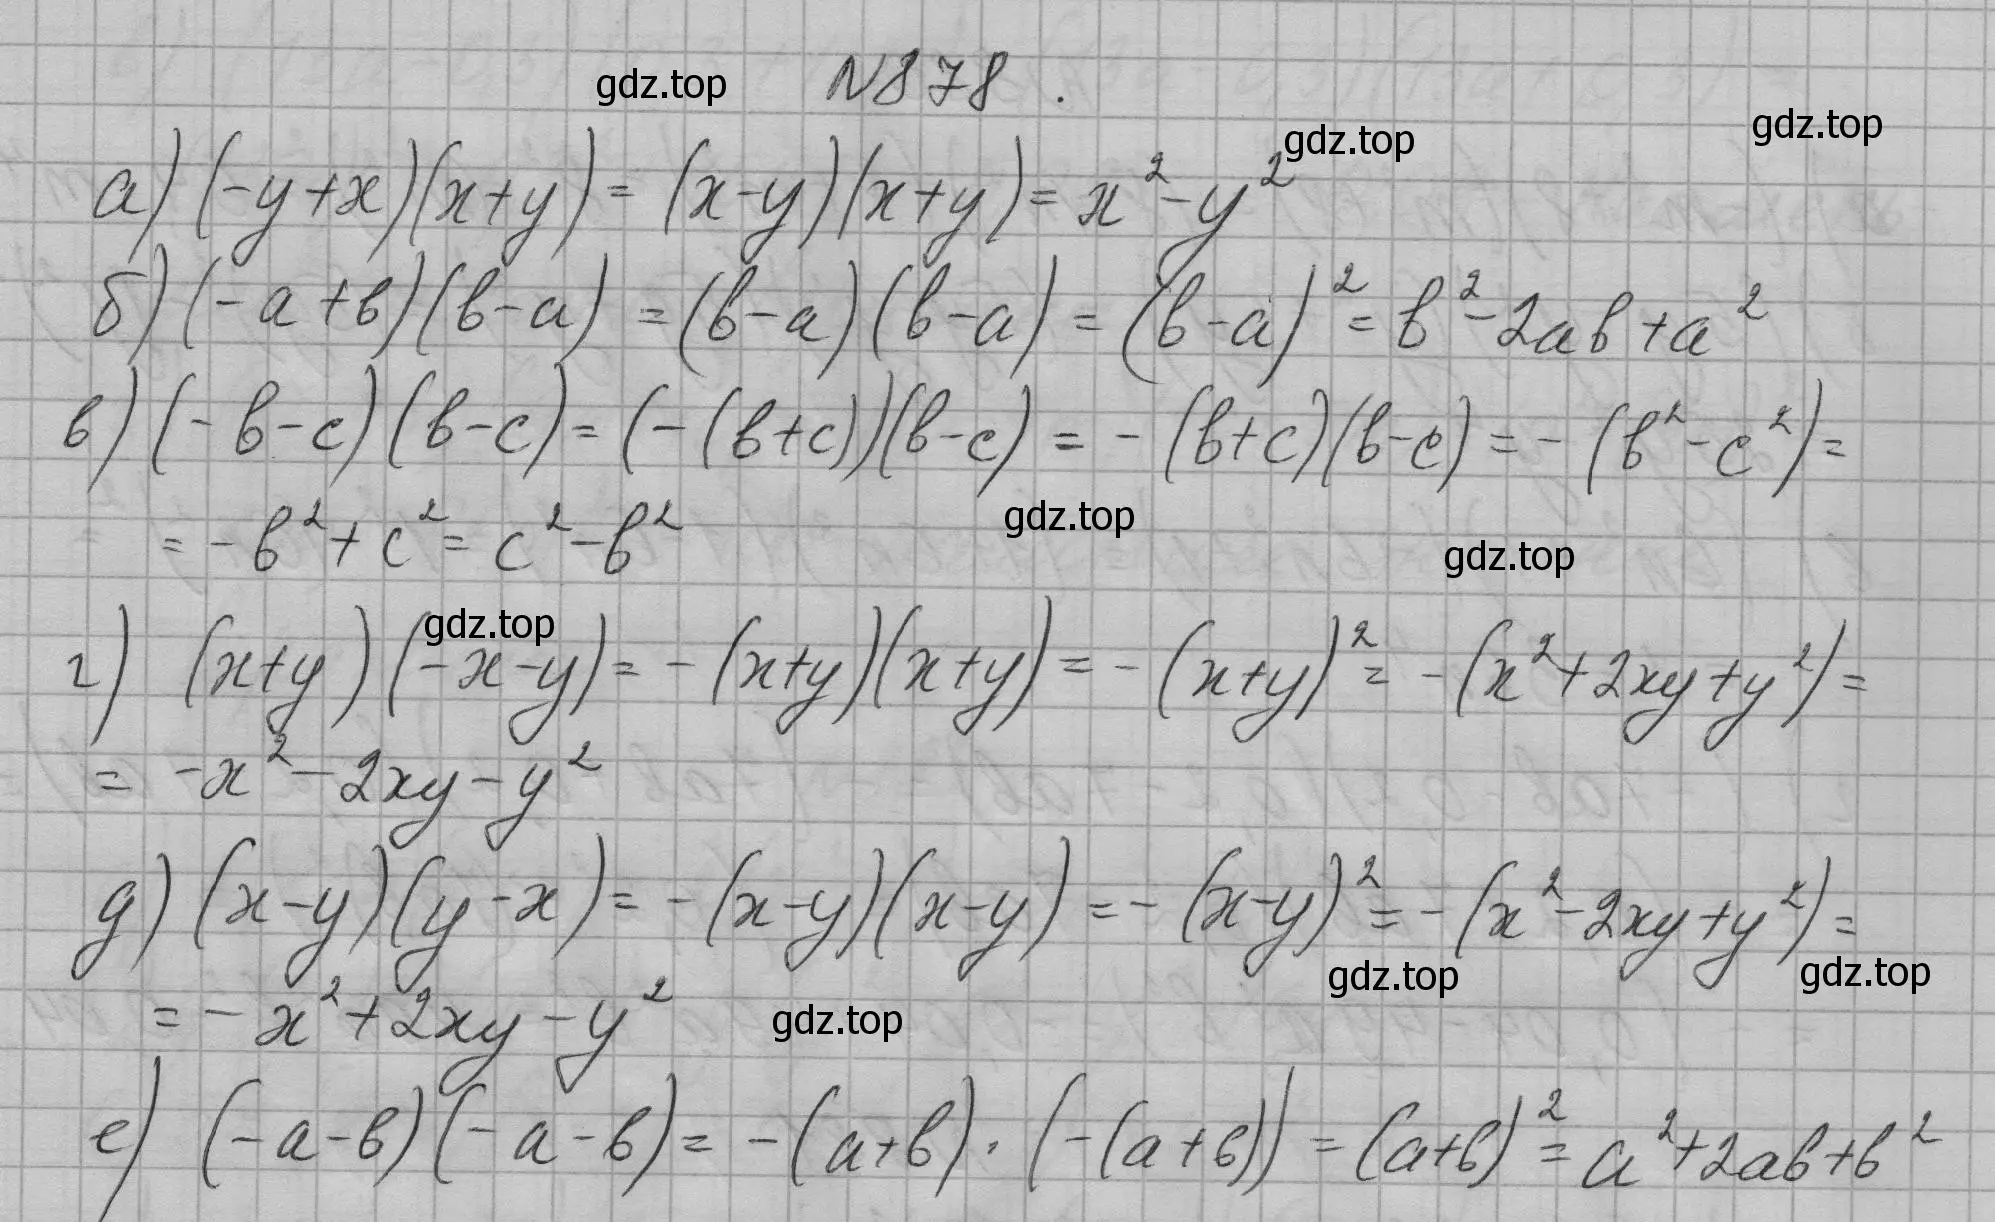 gdz.top №878. gdz.top gdz.top
а) (-y+x)(x+y) = (x-y)(x+y) = x²-y²
б) (-a+b)(b-a) = (b-a)(b-a) = (b-a)² = b²-2ab+a²
в) (-b-c)(b-c) = (-(b+c))(b-c) = -(b+c)(b-c) = -(b²-c²) =
= -b²+c² = c²-b² gdz.top gdz.top
gdz.top
г) (x+y)(-x-y) = -(x+y)(x+y) = -(x+y)² = -(x²+2xy+y²) =
= -x²-2xy-y²
д) (x-y)(y-x) = -(x-y)(x-y) = -(x-y)² = -(x²-2xy+y²) =
gdz.top gdz.top
= -x²+2xy-y² gdz.top
е) (-a-b)(-a-b) = -(a+b)·(-(a+b)) = (a+b)² = a²+2ab+b²